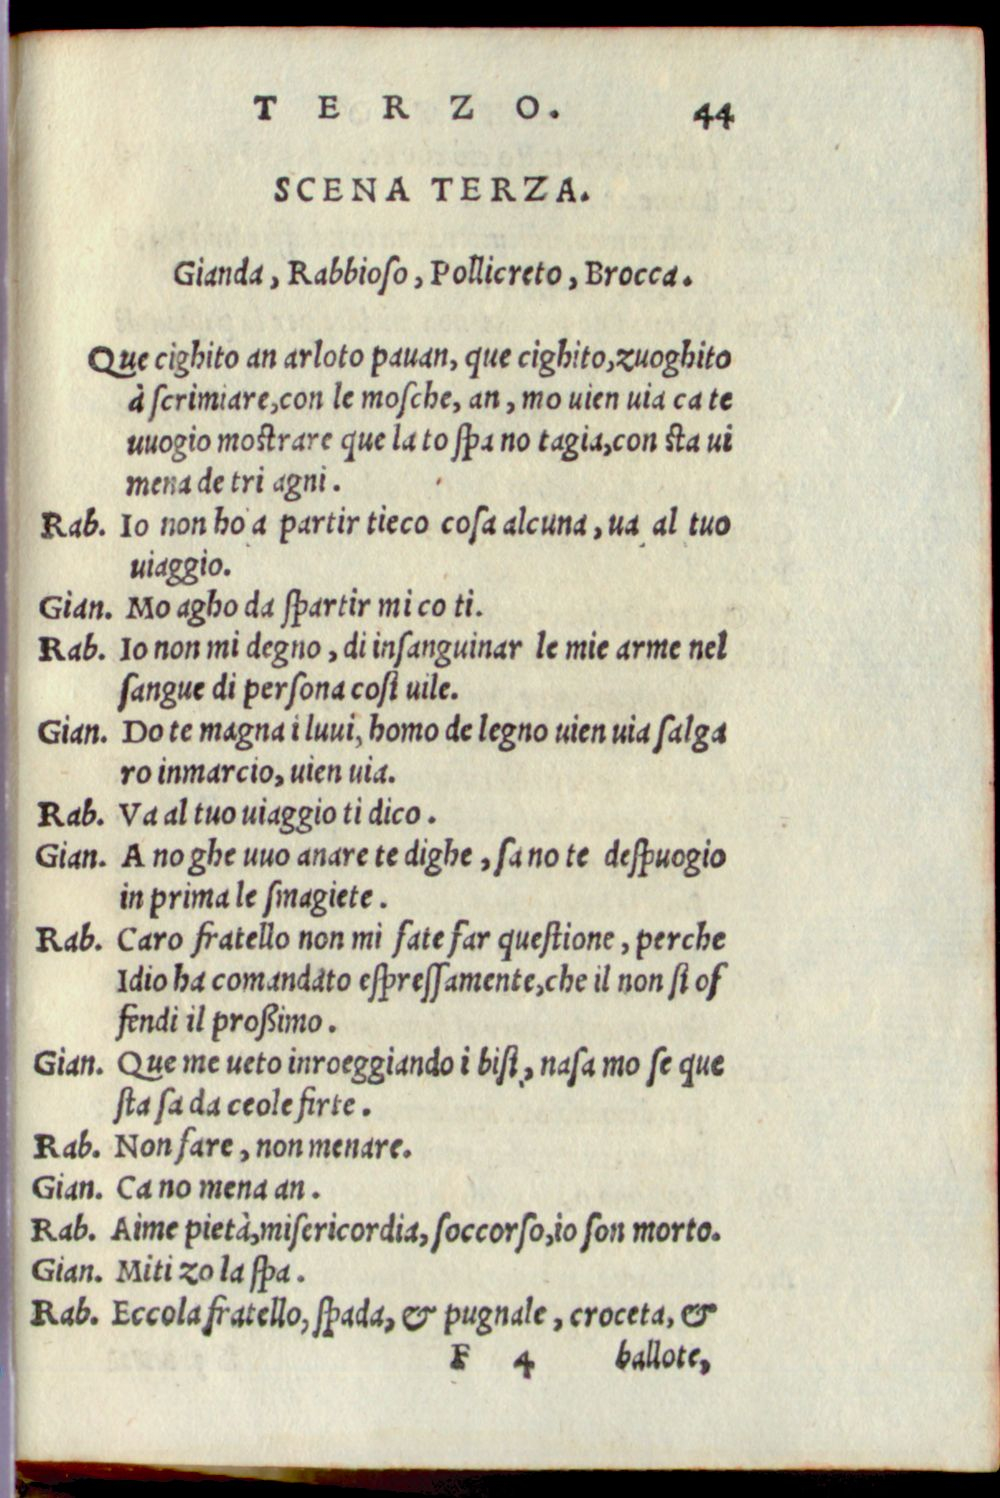 TERZO. 44
SCENA TERZA.
Gianda, Rabbioſo, Pollicreto, Brocca.
Que cighito an arloto pauan, que cighito, zuoghito
à ſcrimiare, con le moſche, an, mo uien uia ca te
uuogio moſtrare que la to ſpa no tagia, con ſta ui
mena de tri agni.
Rab. Io non ho a partir tieco coſa alcuna, ua al tuo
uiaggio.
Gian. Mo agho da ſpartir mi co ti.
Rab. Io non mi degno, di inſanguinar le mie arme nel
ſangue di perſona coſi uile.
Gian. Do te magna i luui, homo de legno uien uia ſalga
ro inmarcio, uien uia.
Rab. Va al tuo uiaggio ti dico.
Gian. A no ghe uuo anare te dighe, ſa no te deſpuogio
in prima le ſmagiete.
Rab. Caro fratello non mi fate far queſtione, perche
Idio ha comandato eſpreſſamente, che il non ſi of
fendi il proßimo.
Gian. Que me ueto inroeggiando i biſi, naſa mo ſe que
ſta ſa da ceole firte.
Rab. Non fare, non menare.
Gian. Ca no mena an.
Rab. Aime pietà, miſericordia, ſoccorſo, io ſon morto.
Gian. Miti zo la ſpa.
Rab. Eccola fratello, ſpada, & pugnale, croceta, &
F 4 ballote,